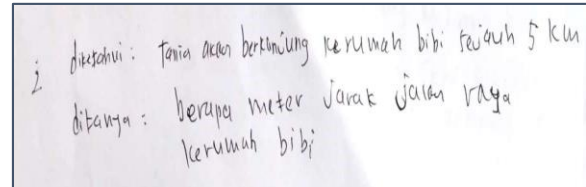 2 diketahui : Tania akan berkunjung kerumah bibi sejauh 5 km
ditanya : berapa meter jarak jalan raya
kerumah bibi